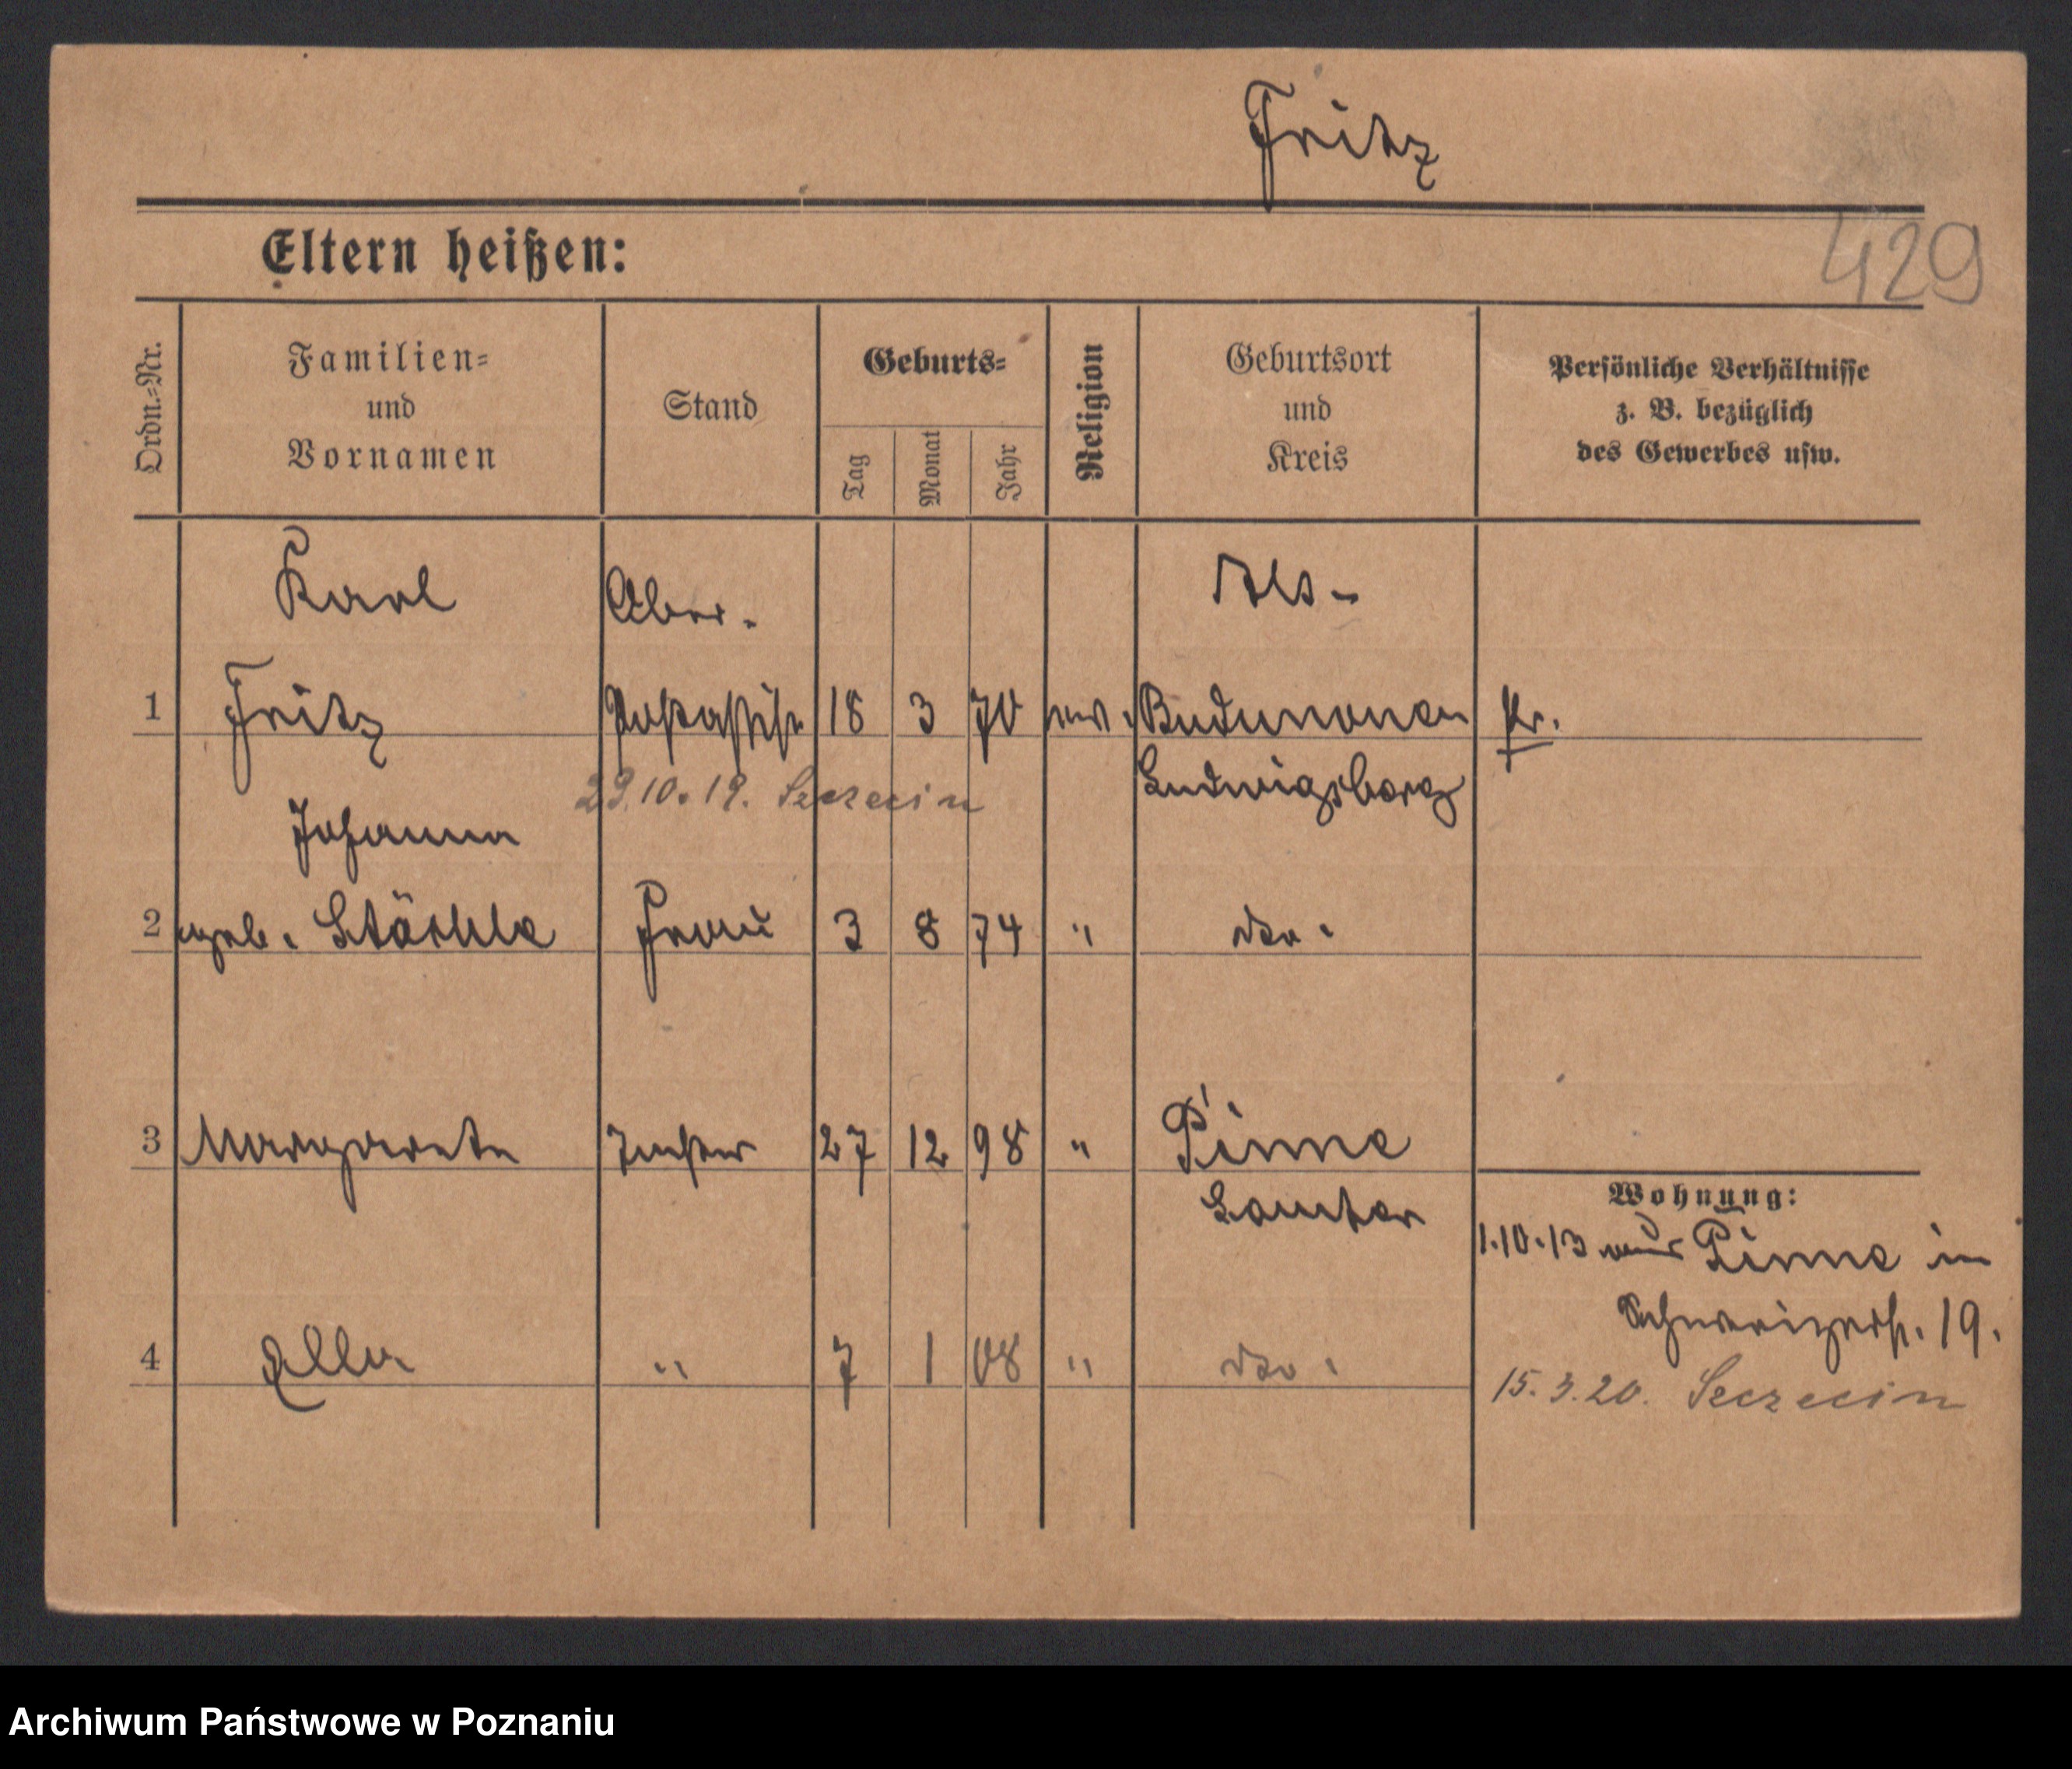 Fritz
429
Eltern heißen:
Ordn.=Nr.
Familien=
und
Vornamen
Stand
Geburts=
Tag
Monat
Jahr
Religion
Geburtsort
und
Kreis
Persönliche Verhältnisse
z. B. bezüglich
des Gewerbes usw.
Karl
Ober-
Alt-
1 Fritz Postassist. 18 3 70 ev. Budupönen pr.
29.10.19. Szczecin
Ludwigsberg
Johanna
2 geb. Frau 3 8 74 " dto.
3 Margarete Tochter 27 12 98 " Pinne
Samter
Wohnung:
1.10.13 aus Pinne in
19.
4 Ella " 7 1 08 " dto.
15.3.20. Szczecin
Archiwum Państwowe w Poznaniu